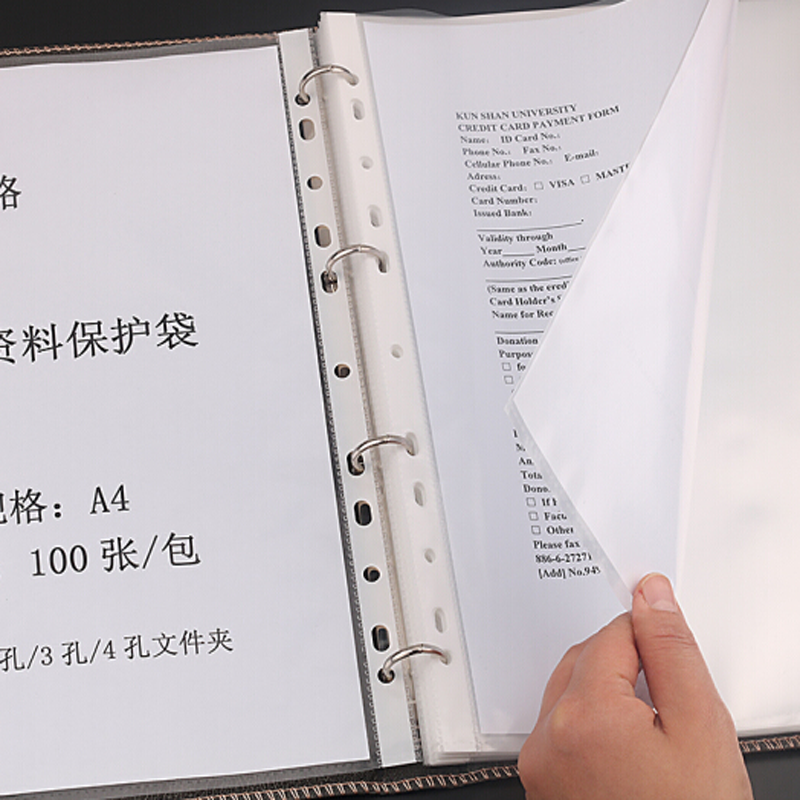 格
资料保护袋
规格：A4
100张/包
孔/3孔/4孔文件夹
KUN SHAN UNIVERSITY
CREDIT CARD PAYMENT FORM
Name: ID Card No.:
Phone No.: Fax No.:
Cellular Phone No.: E-mail:
Adress:
Credit Card: □ VISA □ MASTE
Card Number:
Issued Bank:
Validity through
Year______ Month____
Authority Code: (office
(Same as the cred
Card Holder's S
Name for Rec
Donation
Purpos
□ fo
□
M
An
Tota
Dono
□ If I
□ Facu
□ Other
Please fax
886-6-2727)
[Add] No.949